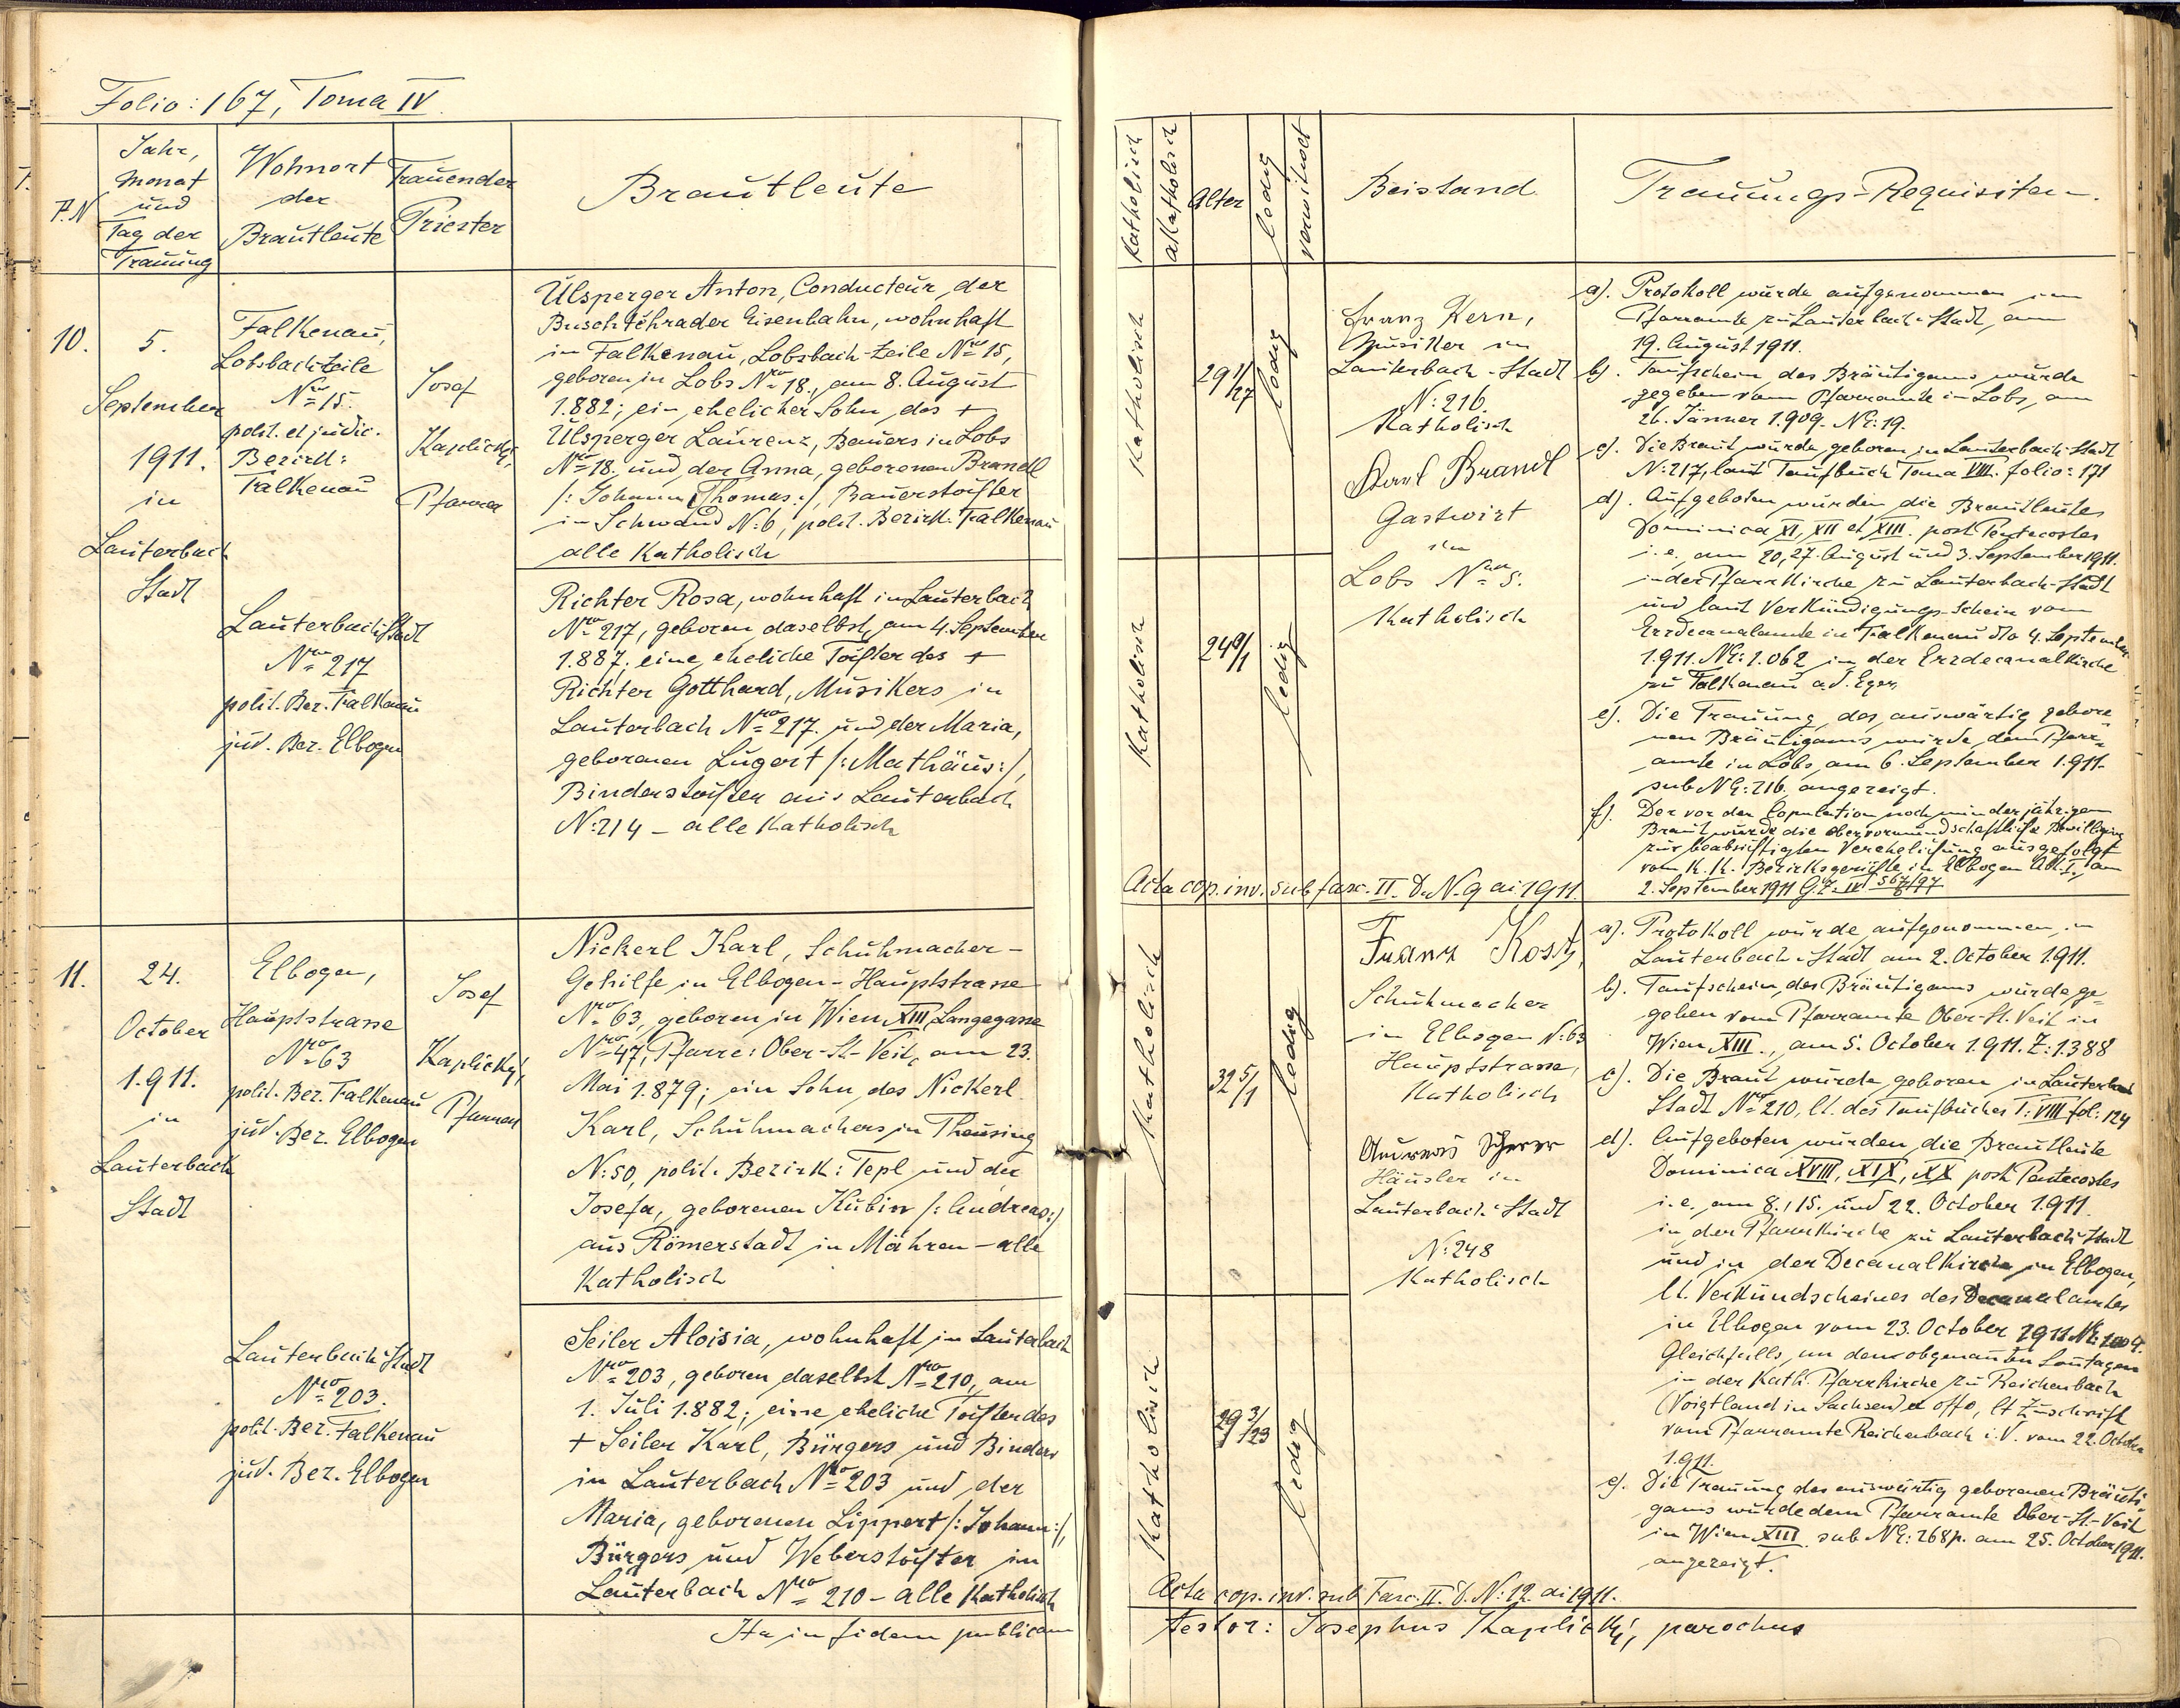 Folio: 167, Toma IV
P.N
Jahr,
Monat
und
Tag der
Trauung
Wohnort
der
Brautleute
Trauender
Priester
Brautleute
10.
5.
September
1911.
in
Lauterbach
Stadt
Falkenau,
Lobsbachzeile
Nro 15.
polit. et judic.
Bezirk:
Falkenau
Josef
Kaplický,
Pfarrer
Ulsperger Anton, Conducteur der
Buschtěhrader Eisenbahn, wohnhaft
in Falkenau, Lobsbach-Zeile Nro 15,
geboren in Lobs Nro 18., am 8. August
1.882; ein ehelicher Sohn des +
Ulsperger Laurenz, Bauers in Lobs
Nro 18. und der Anna, geborenen Brandl
/: Johann Thomas :/, Bauerstochter
in Schwand N: 6, polit. Bezirk: Falkenau
alle Katholisch
Lauterbach-Stadt
Nro 217
polit. Bez. Falkenau
jud. Bez. Elbogen
Richter Rosa, wohnhaft in Lauterbach
Nro 217, geboren daselbst, am 4. September
1.887; eine eheliche Tochter des +
Richter Gotthard, Musikers in
Lauterbach Nro 217. und der Maria,
geborenen Lugert /: Mathäus :/,
Binderstochter aus Lauterbach
N: 214 - alle Katholisch
11.
24.
October
1.911.
in
Lauterbach
Stadt
Elbogen,
Hauptstrasse
Nro 63
polit. Bez. Falkenau
jud. Bez. Elbogen
Josef
Kaplický,
Pfarrer
Nickerl Karl, Schuhmacher-
Gehilfe in Elbogen-Hauptstrasse
Nro 63, geboren in Wien XIII, Langegasse
Nro 47, Pfarre: Ober-St-Veit, am 23.
Mai 1.879; ein Sohn des Nickerl
Karl, Schuhmachers in Theusing
N: 50, polit. Bezirk: Tepl und der
Josefa, geborenen Kubin /: Andreas :/
aus Römerstadt in Mähren - alle
Katholisch
Lauterbach-Stadt
Nro 203.
polit. Bez. Falkenau
jud. Bez. Elbogen
Seiler Aloisia, wohnhaft in Lauterbach
Nro 203, geboren daselbst Nro 210, am
1. Juli 1.882; eine eheliche Tochter des
+ Seiler Karl, Bürgers und Binders
in Lauterbach Nro 203 und der
Maria, geborenen Lippert /: Johann :/,
Bürgers und Weberstochter in
Lauterbach Nro 210 - alle Katholisch
Ita in fidem publicam
Katholisch
akatholisch
Alter
ledig
verwitwet
Beistand
Trauungs-Requisiten.
Katholisch
29 1/27
ledig
Franz Kern,
Musiker in
Lauterbach-Stadt
N: 216.
Katholisch
Karl Brandl
Gastwirt
in
Lobs Nro 5.
Katholisch
Katholisch
24 0/1
ledig
a). Protokoll wurde aufgenommen im
Pfarramte zu Lauterbach-Stadt, am
19. August 1911.
b). Taufschein des Bräutigams wurde
gegeben vom Pfarramte in Lobs, am
26. Jänner 1.909. NE: 19.
c). Die Braut wurde geboren in Lauterbach-Stadt
N: 217, laut Taufbuch Toma VIII. folio: 171
d). Aufgeboten wurden die Brautleute
Dominica XI, XII et XIII. post Pentecostes
i. e. am 20, 27. August und 3. September 1911.
in der Pfarrkirche zu Lauterbach-Stadt
und laut Verkündigungs-Schein vom
Erzdecanalamte in Falkenau dto 4. September
1.911. NE: 1.062 in der Erzdecanalkirche
zu Falkenau a.d. Eger,
e). Die Trauung des auswärtig gebore-
nen Bräutigams wurde dem Pfarr-
amte in Lobs, am 6. September 1.911.
sub NE: 216. angezeigt.
f). Der vor der Copulation noch minderjährigen
Braut wurde die obervormundschaftliche Bewilligung
zur beabsichtigten Verehelichung ausgefolgt
vom K. K. Bezirksgerichte in Elbogen Abt. I., am
2. September 1911 G.Z.
Acta cop. inv. sub fasc. II. D. N. 9 ai 1911.
Katholisch
32 5/1
ledig
Franz Kostz,
Schuhmacher
in Elbogen N: 63
Hauptstrasse,
Katholisch
Andreas Scherer
Häusler in
Lauterbach-Stadt
N: 248
Katholisch
Katholisch
29 3/23
ledig
a). Protokoll wurde aufgenommen in
Lauterbach-Stadt am 2. October 1.911.
b). Taufschein des Bräutigams wurde ge-
geben vom Pfarramte Ober-St. Veit in
Wien XIII., am 5. October 1.911. Z: 1388
c). Die Braut wurde geboren in Lauterbach
Stadt Nro 210, lt. des Taufbuches T: VIII fol: 124
d). Aufgeboten wurden die Brautleute
Dominica XVIII, XIX, XX post Pentecostes
i. e. am 8., 15. und 22. October 1.911.
in der Pfarrkirche zu Lauterbach-Stadt
und in der Decanalkirche in Elbogen,
lt. Verkündscheines des Decanalamtes
in Elbogen vom 23. October 1911
Gleichfalls, an den obgenannten Sontagen
in der Kath. Pfarrkirche zu Reichenbach
(Voigtland in Sachsen) lt Zuschrift
vom Pfarramte Reichenbach i. V. vom 22. October
1.911.
e). Die Trauung des auswärtig geborenen Bräuti-
gams wurde dem Pfarramte Ober-St-Veit
in Wien XIII sub NE: 268 p. am 25. October 1911.
angezeigt.
Acta cop. inv. sub Fasc. II. D. N: 12. ai 1911.
Testor: Josephus Kaplický, parochus